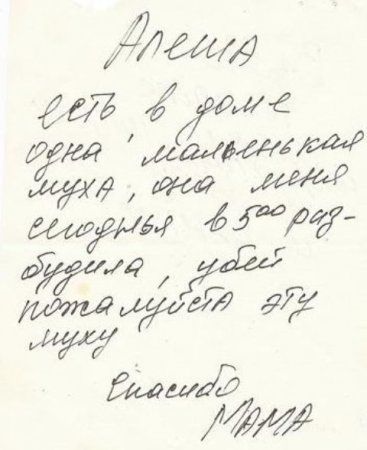 Алеша
есть в доме
одна маленькая
муха, она меня
сегодня в 5⁰⁰ раз-
будила, убей
пожалуйста эту
муху
спасибо
МАМА